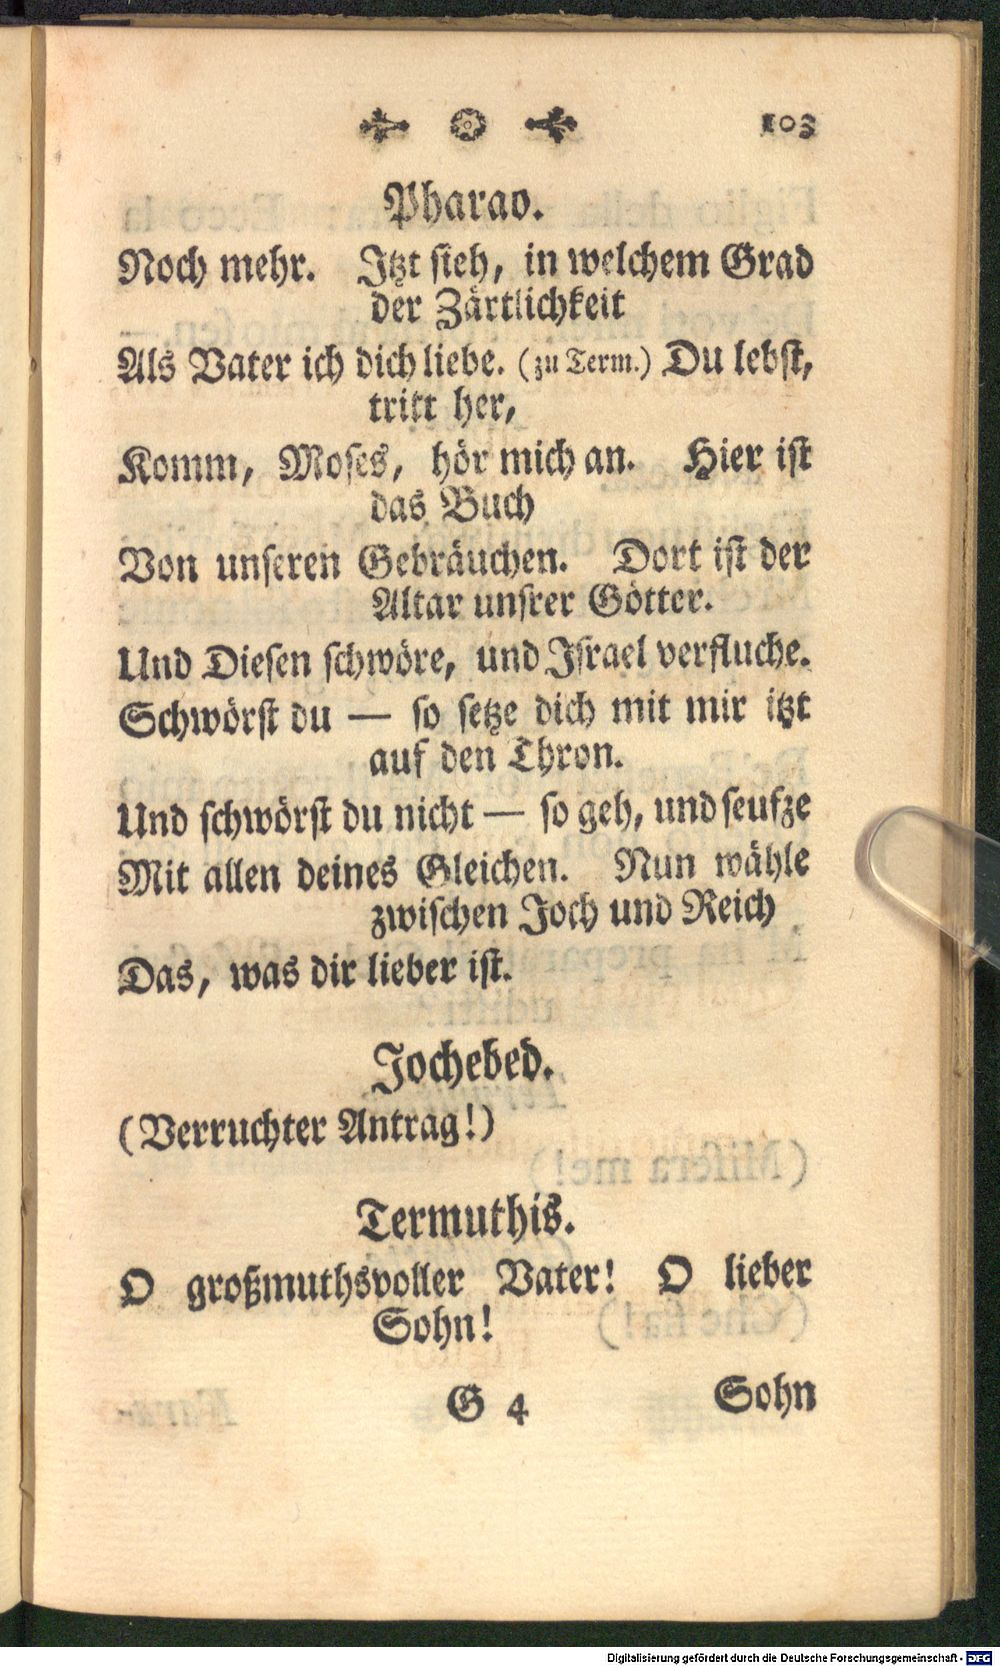 103
Pharao.
Noch mehr. Itzt sieh, in welchem Grad
der Zärtlichkeit
Als Vater ich dich liebe. (zu Term.) Du lebst,
tritt her,
Komm, Moses, hör mich an. Hier ist
das Buch
Von unseren Gebräuchen. Dort ist der
Altar unsrer Götter.
Und Diesen schwöre, und Israel verfluche.
Schwörst du — so setze dich mit mir itzt
auf den Thron.
Und schwörst du nicht — so geh, und seufze
Mit allen deines Gleichen. Nun wähle
zwischen Joch und Reich
Das, was dir lieber ist.
Jochebed.
(Verruchter Antrag!)
Termuthis.
O großmuthsvoller Vater! O lieber
Sohn!
G 4 Sohn
Digitalisierung gefördert durch die Deutsche Forschungsgemeinschaft - DFG